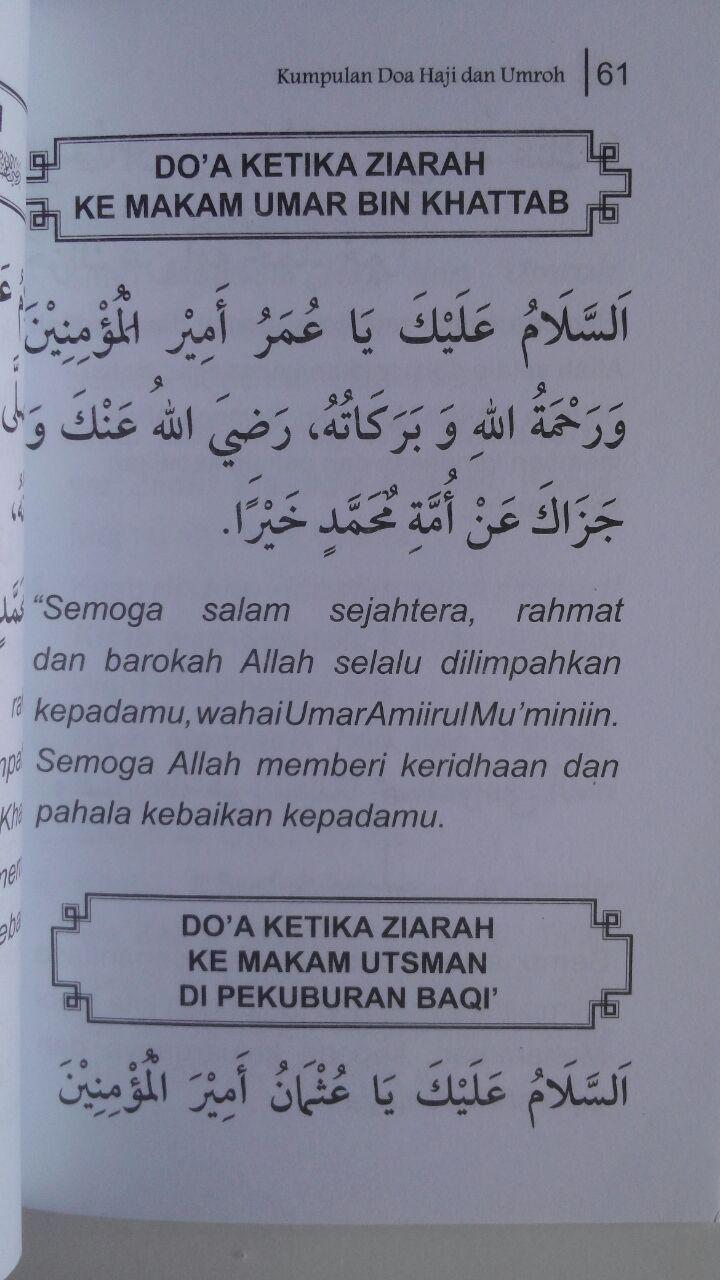 Kumpulan Doa Haji dan Umroh | 61
DO'A KETIKA ZIARAH
KE MAKAM UMAR BIN KHATTAB
اَلسَّلَامُ عَلَيْكَ يَا عُمَرُ أَمِيْر الْمُؤْمِنِيْنَ
وَرَحْمَةُ اللهِ وَ بَرَكَاتُهُ، رَضِيَ اللهُ عَنْكَ وَ
جَزَاكَ عَنْ أُمَّةِ مُحَمَّدٍ خَيْرًا.
"Semoga salam sejahtera, rahmat
dan barokah Allah selalu dilimpahkan
kepadamu, wahai Umar Amiirul Mu'miniin.
Semoga Allah memberi keridhaan dan
pahala kebaikan kepadamu.
DO'A KETIKA ZIARAH
KE MAKAM UTSMAN
DI PEKUBURAN BAQI'
اَلسَّلَامُ عَلَيْكَ يَا عُثْمَانُ أَمِيْرَ الْمُؤْمِنِيْنَ